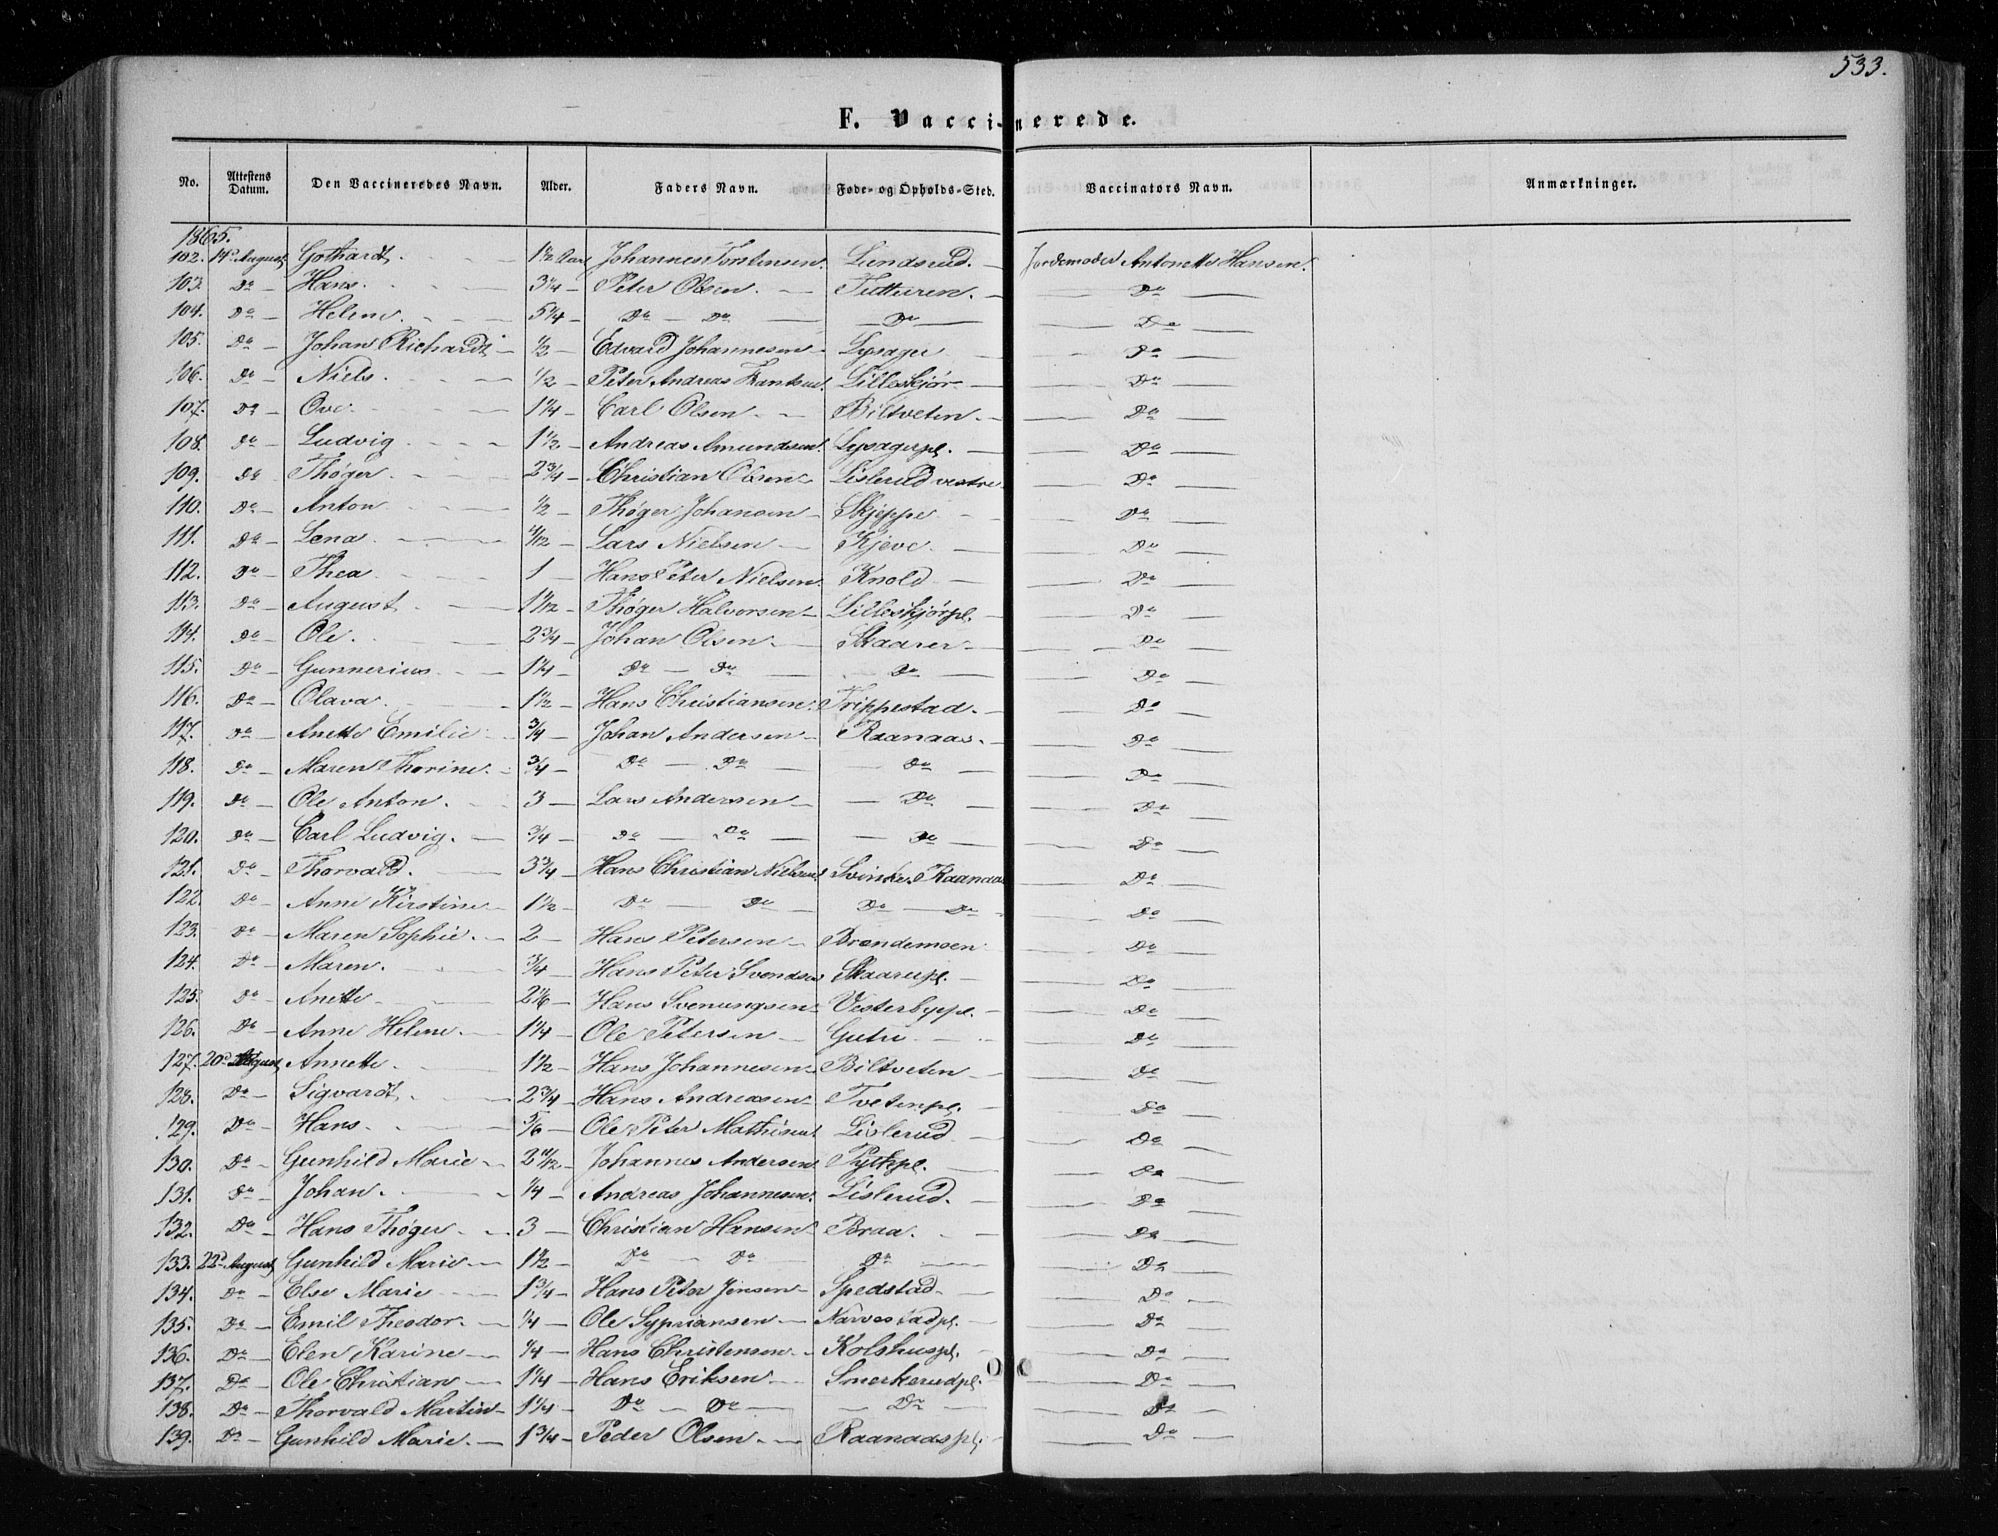 533.
F. Vaccinerede.
No. Attestens Datum. Den Vaccineredes Navn. Alder. Faders Navn. Føde- og Opholds-Sted. Vaccinators Navn. Anmærkninger.
1865.
102. 14d August Gothardt. 1 1/2 Aar Johannes Torstensen. Lundsrud. Jordemoder Antonette Hansen.
103. Do Hans. 3 1/4 Peter Olsen. Tutturen. Do
104. Do Helene. 5 1/4 Do Do Do Do
105. Do Johan Richardt 1/2 Edvard Johannesen Lysager Do
106. Do Niels. 1/2 Peter Andreas Lilleskjør Do
107. Do Ove. 1 1/4 Carl Olsen Biltveten. Do
108. Do Ludvig 1 1/2 Andreas Amundsen. Lysagerpl. Do
109. Do Thøger 2 3/4 Christian Olsen Lislerud vestre Do
110. Do Anton 1/2 Thøger Johansen Skjippe Do
111. Do Lena 4/12 Lars Nielsen Kjeve. Do
112. Do Thea 1 Hans Peter Nielsen. Knold Do
113. Do August 1 1/12 Thøger Halvorsen Lilleskjørpl. Do
114. Do Ole. 2 3/4 Johan Olsen Skaarer Do
115. Do Gunnerius. 1 1/4 Do Do Do Do
116. Do Olava. 1 1/2 Hans Christiansen. Trippestad. Do
117. Do Anette Emilie 3/4 Johan Andersen Raanaas. Do
118. Do Maren Thorine. 3/4 Do Do Do Do
119. Do Ole Anton. 3 Lars Andersen Do Do
120. Do Carl Ludvig. 3/4 Do Do Do Do
121. Do Thorvald. 3 3/4 Hans Christian Nielsen Raanaas Do
122. Do Anne Kirstine 1 1/2 Do Do Do Do Do
123. Do Maren Sophie. 2 Hans Petersen Brændemoen Do
124. Do Maren. 3/4 Hans Peter Svendsen Skaarerpl. Do
125. Do Anette 2 1/6 Hans Svenungsen Vesterbypl. Do
126. Do Anne Helene 1 1/4 Ole Petersen Gutu Do
127. 20d August Annette. 1 1/2 Hans Johannesen Biltveten Do
128. Do Sigvardt. 2 3/4 Hans Andreasen Tvetenpl. Do
129. Do Hans. 5/6 Ole Peter Mathisen. Lislerud Do
130. Do Gunhild Marie 2 4/12 Johannes Andersen Do
131. Do Johan. 1/4 Andreas Johannesen. Lislerud. Do
132. Do Hans Thøger 3 Christian Hansen Braa. Do
133. 22d August Gunhild Marie 1 1/2 Do Do Do Do
134. Do Else Marie 1 3/4 Hans Peter Jensen Spedstad. Do
135. Do Emil Theodor. 1/4 Ole Sypriansen Narvestadpl. Do
136. Do Elen Karine 1/4 Hans Christensen Kolshuspl. Do
137. Do Ole Christian 1 1/4 Hans Eriksen Smerkerudpl. Do
138. Do Thorvald Martin 1 1/4 Do Do Do Do
139. Do Gunhild Marie. 1 3/4 Peder Olsen Raanaaspl. Do